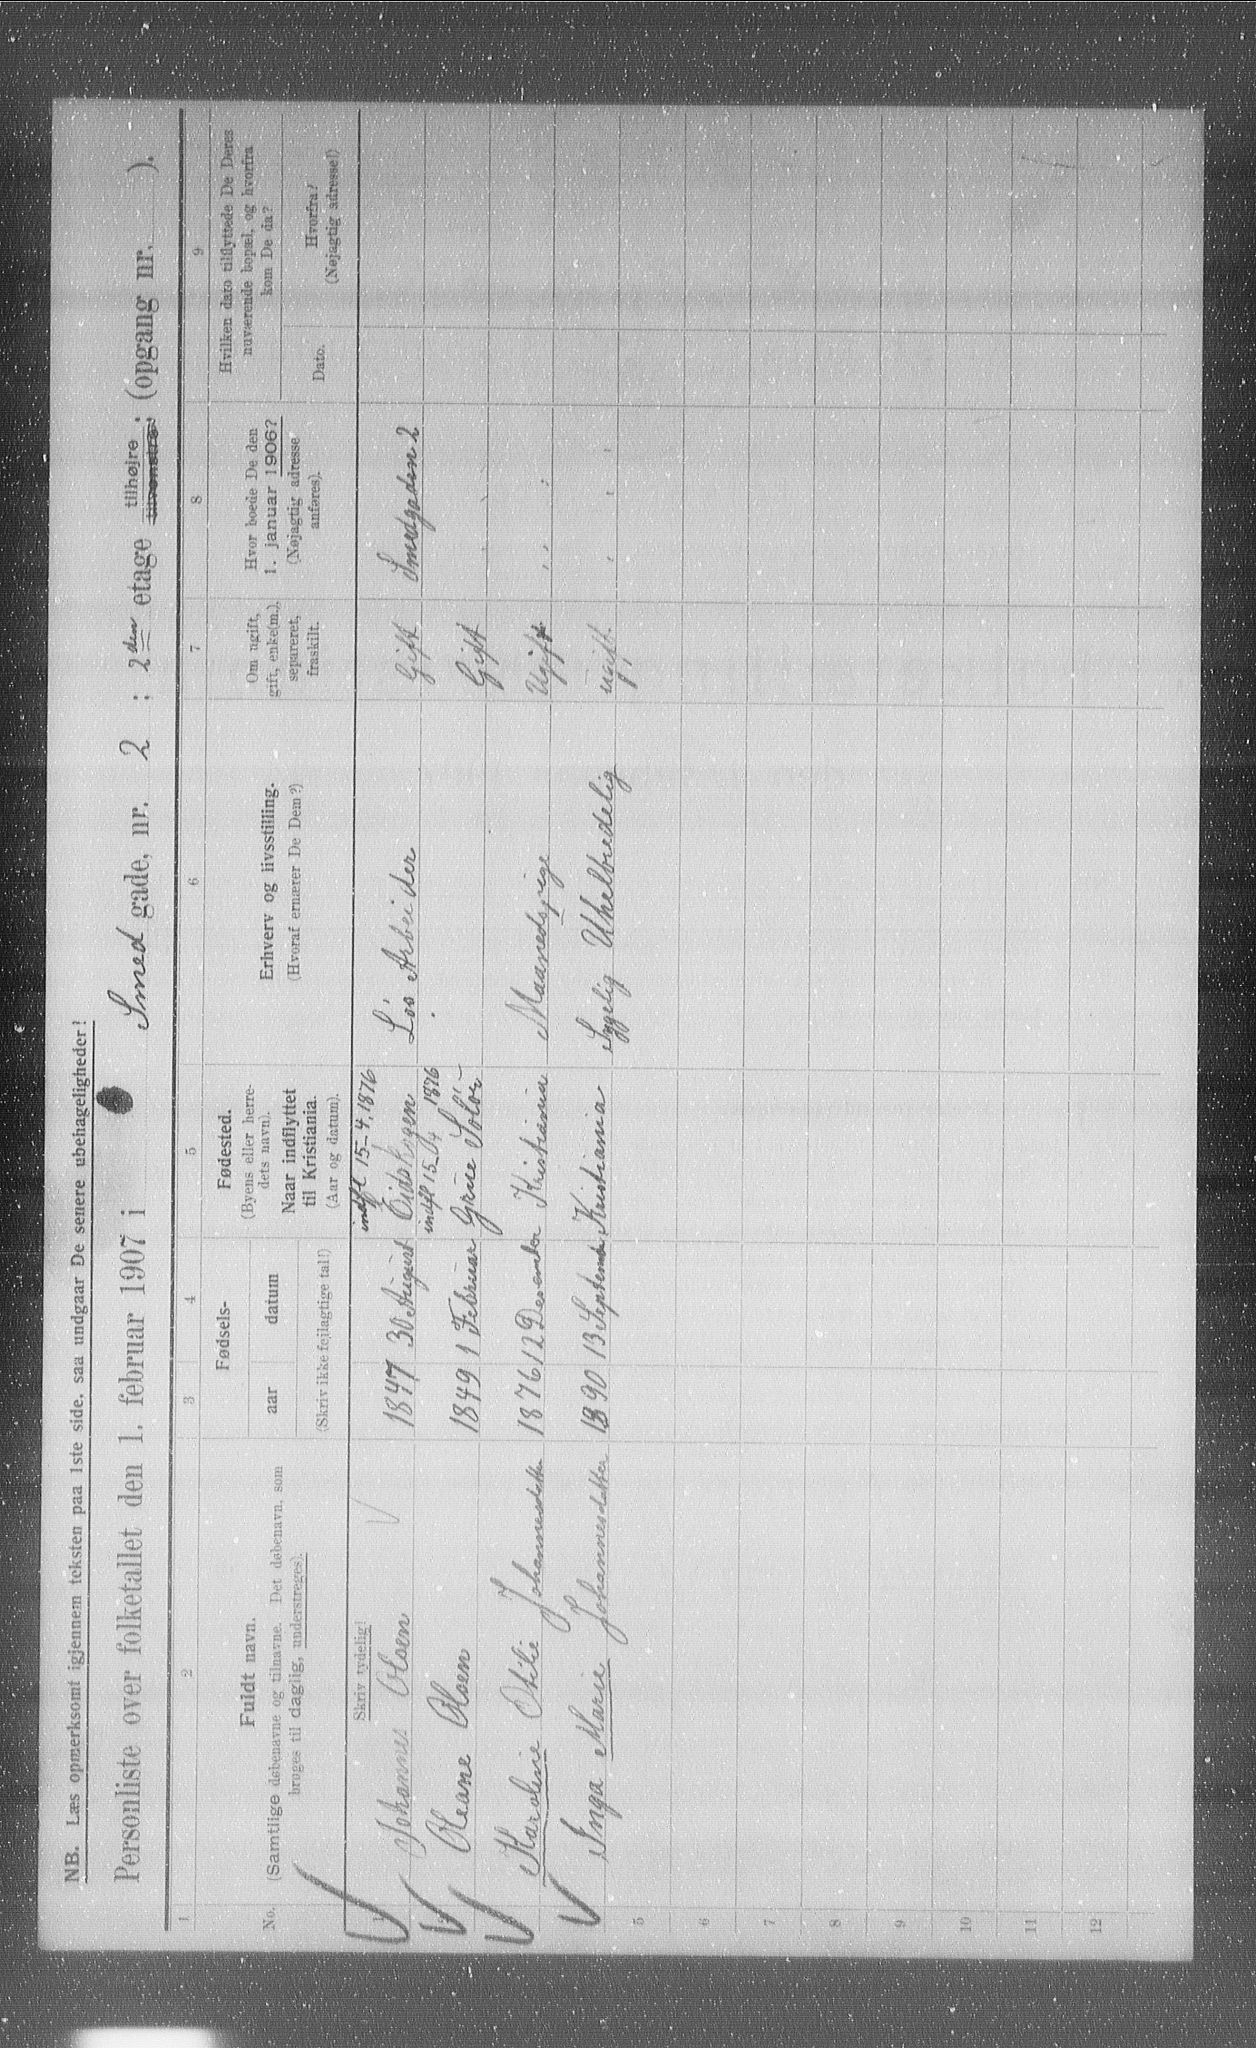 NB. Læs opmerksomt igjennem teksten paa 1ste side, saa undgaar De senere ubehageligheder!
Personliste over folketallet den 1. februar 1907 i Smed gade, nr. 2 ; 2den etage tilhøjre tilvenstre; (opgang nr. ).
1 2 3 4 5 6 7 8 9
No.
Fuldt navn.
(Samtlige døbenavne og tilnavne. Det døbenavn, som
bruges til daglig, understreges).
Fødsels-
aar datum
(Skriv ikke fejlagtige tal!)
Fødested.
(Byens eller herre-
dets navn).
Naar indflyttet
til Kristiania.
(Aar og datum).
Erhverv og livsstilling.
(Hvoraf ernærer De Dem?)
Om ugift,
gift, enke(m.),
separeret,
fraskilt.
Hvor boede De den
1. januar 1906?
(Nøjagtig adresse
anføres).
Hvilken dato tilflyttede De Deres
nuværende bopæl, og hvorfra
kom De da?
Dato.
Hvorfra?
(Nøjagtig adresse!)
Skriv tydelig!
indfl 15-4, 1876
1 Johannes Olsen 1847 30 August Eidskogen Løs Arbeider Gift Smedgaden 2
indfl 15-4 1876
Oleane Olsen 1849 1 Februar Grue Solør Gift
Karoline Otilie Johannesdatter 1876 12 Desember Kristiania Maanedspige Ugift " "
Inga Marie Johannesdatter 1890 13 September Kristiania Sygelig Uhelbredelig ugift " "
5
6
7
8
9
10
11
12